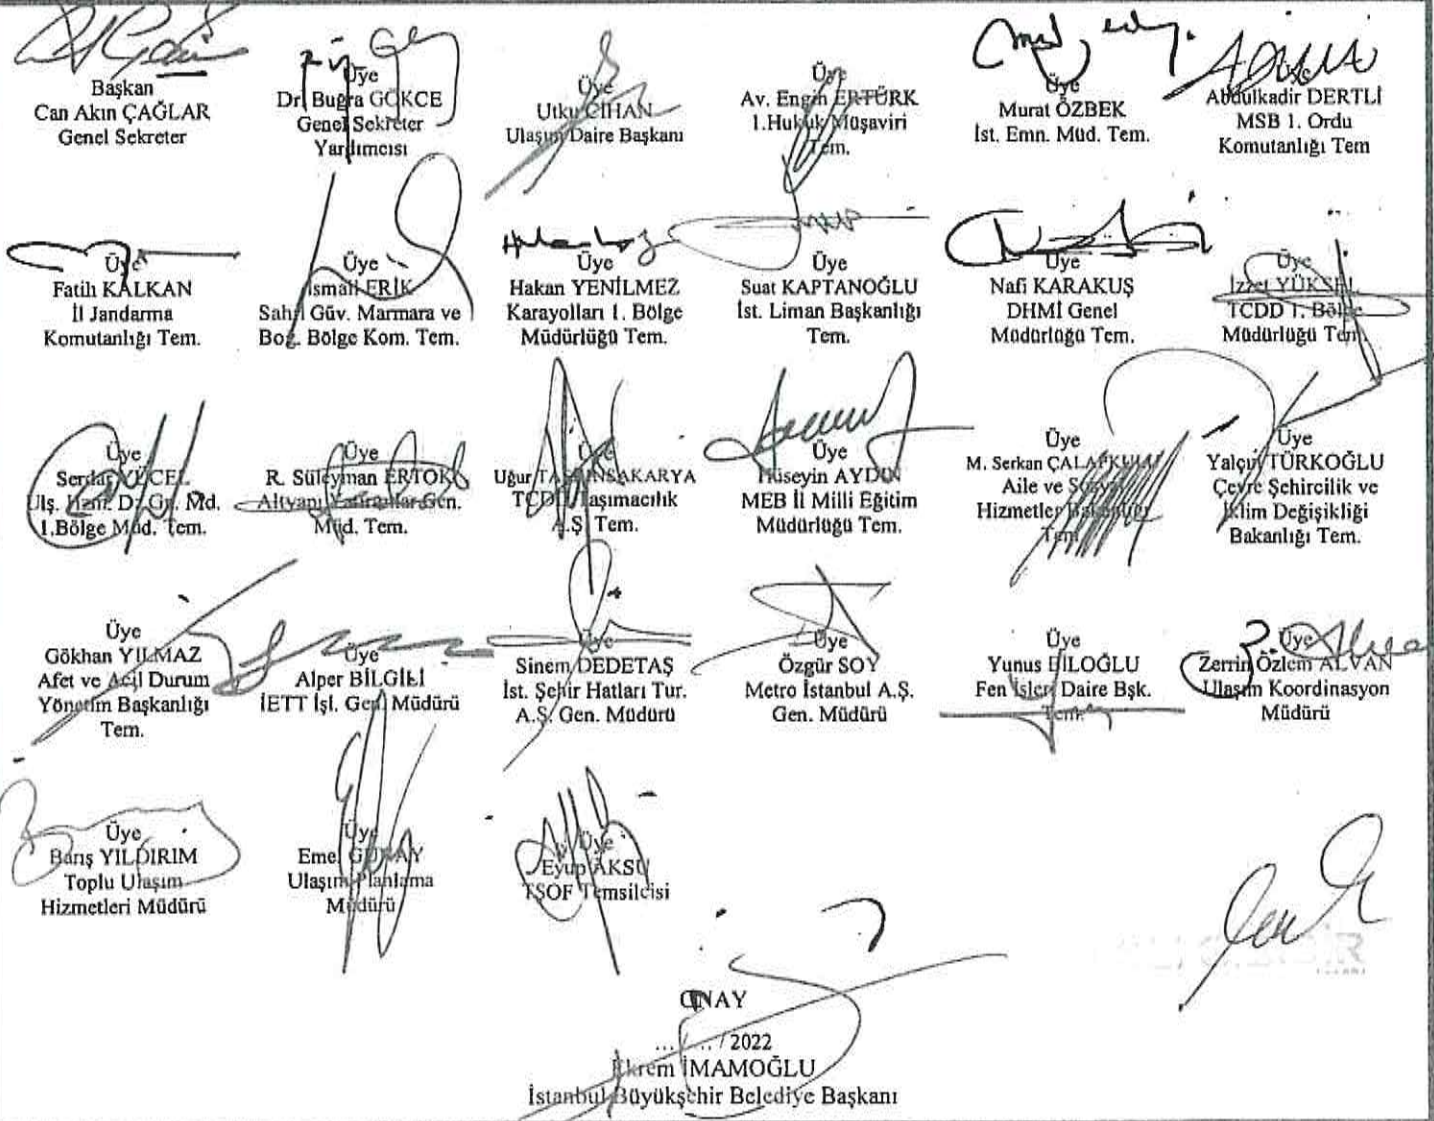 Başkan
Can Akın ÇAĞLAR
Genel Sekreter
Üye
Dr. Buğra GÖKCE
Genel Sekreter
Yardımcısı
Üye
Utku CİHAN
Ulaşım Daire Başkanı
Üye
Av. Engin ERTÜRK
1.Hukuk Müşaviri
Tem.
Üye
Murat ÖZBEK
İst. Emn. Müd. Tem.
Üye
Abdulkadir DERTLİ
MSB 1. Ordu
Komutanlığı Tem
Üye
Fatih KALKAN
İl Jandarma
Komutanlığı Tem.
Üye
İsmail ERİK
Sahil Güv. Marmara ve
Boğ. Bölge Kom. Tem.
Üye
Hakan YENİLMEZ
Karayolları 1. Bölge
Müdürlüğü Tem.
Üye
Suat KAPTANOĞLU
İst. Liman Başkanlığı
Tem.
Üye
Nafi KARAKUŞ
DHMİ Genel
Müdürlüğü Tem.
Üye
İzzet YÜKSEL
TCDD 1. Bölge
Müdürlüğü Tem.
Üye
Serdar YÜCEL
Ulş. Hzm. Dz. Gn. Md.
1.Bölge Müd. Tem.
Üye
R. Süleyman ERTOK
Altyapı Yatırımlar Gen.
Müd. Tem.
Üye
Uğur
TCDD Taşımacılık
A.Ş. Tem.
Üye
Hüseyin AYDIN
MEB İl Milli Eğitim
Müdürlüğü Tem.
Üye
M. Serkan
Aile ve Sosyal
Hizmetler Bakanlığı
Tem.
Üye
Yalçın TÜRKOĞLU
Çevre Şehircilik ve
İklim Değişikliği
Bakanlığı Tem.
Üye
Gökhan YILMAZ
Afet ve Acil Durum
Yönetim Başkanlığı
Tem.
Üye
Alper BİLGİLİ
İETT İşl. Gen. Müdürü
Üye
Sinem DEDETAŞ
İst. Şehir Hatları Tur.
A.Ş. Gen. Müdürü
Üye
Özgür SOY
Metro İstanbul A.Ş.
Gen. Müdürü
Üye
Yunus
Fen İşleri Daire Bşk.
Tem.
Üye
Zerrin Özlem ALVAN
Ulaşım Koordinasyon
Müdürü
Üye
Barış YILDIRIM
Toplu Ulaşım
Hizmetleri Müdürü
Üye
Emel
Ulaşım Planlama
Müdürü
Üye
Eyup AKSU
TŞOF Temsilcisi
ONAY
... / ... / 2022
Ekrem İMAMOĞLU
İstanbul Büyükşehir Belediye Başkanı